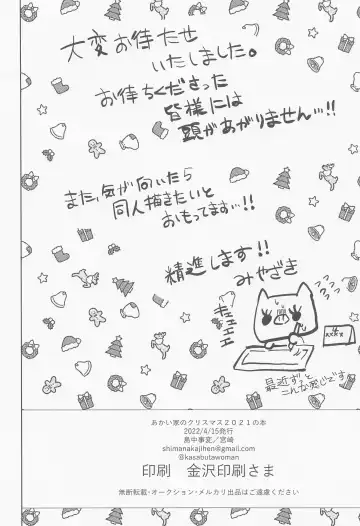 大変お待たせ
いたしました。
お待ちくださった
皆様には
頭があがりません…!!
また、気が向いたら
同人描きたいと
おもってます…!!
精進します!!
みやざき
キェェェェ
最近ずっと
こんな感じです
あかい家のクリスマス2021の本
2022/4/15発行
島中事変／宮崎
shimanakajihen@gmail.com
@kasabutawoman
印刷　金沢印刷さま
無断転載・オークション・メルカリ出品はご遠慮ください